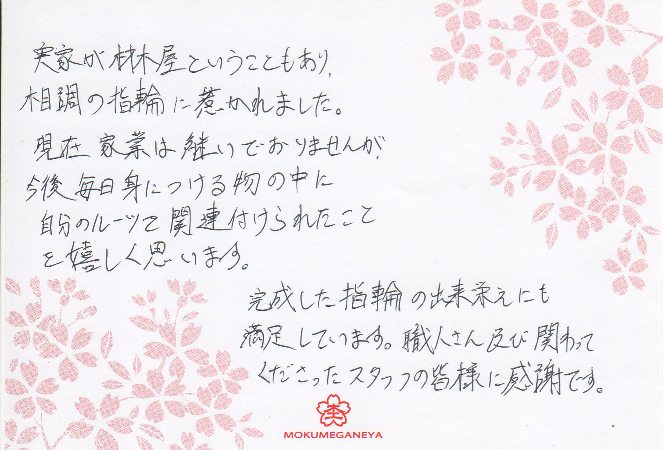 実家が材木屋ということもあり、
木目調の指輪に惹かれました。
現在家業は継いでおりませんが、
今後毎日身につける物の中に
自分のルーツで関連付けられたこと
を嬉しく思います。
完成した指輪の出来栄えにも
満足しています。職人さん及び関わって
くださったスタッフの皆様に感謝です。
MOKUMEGANEYA